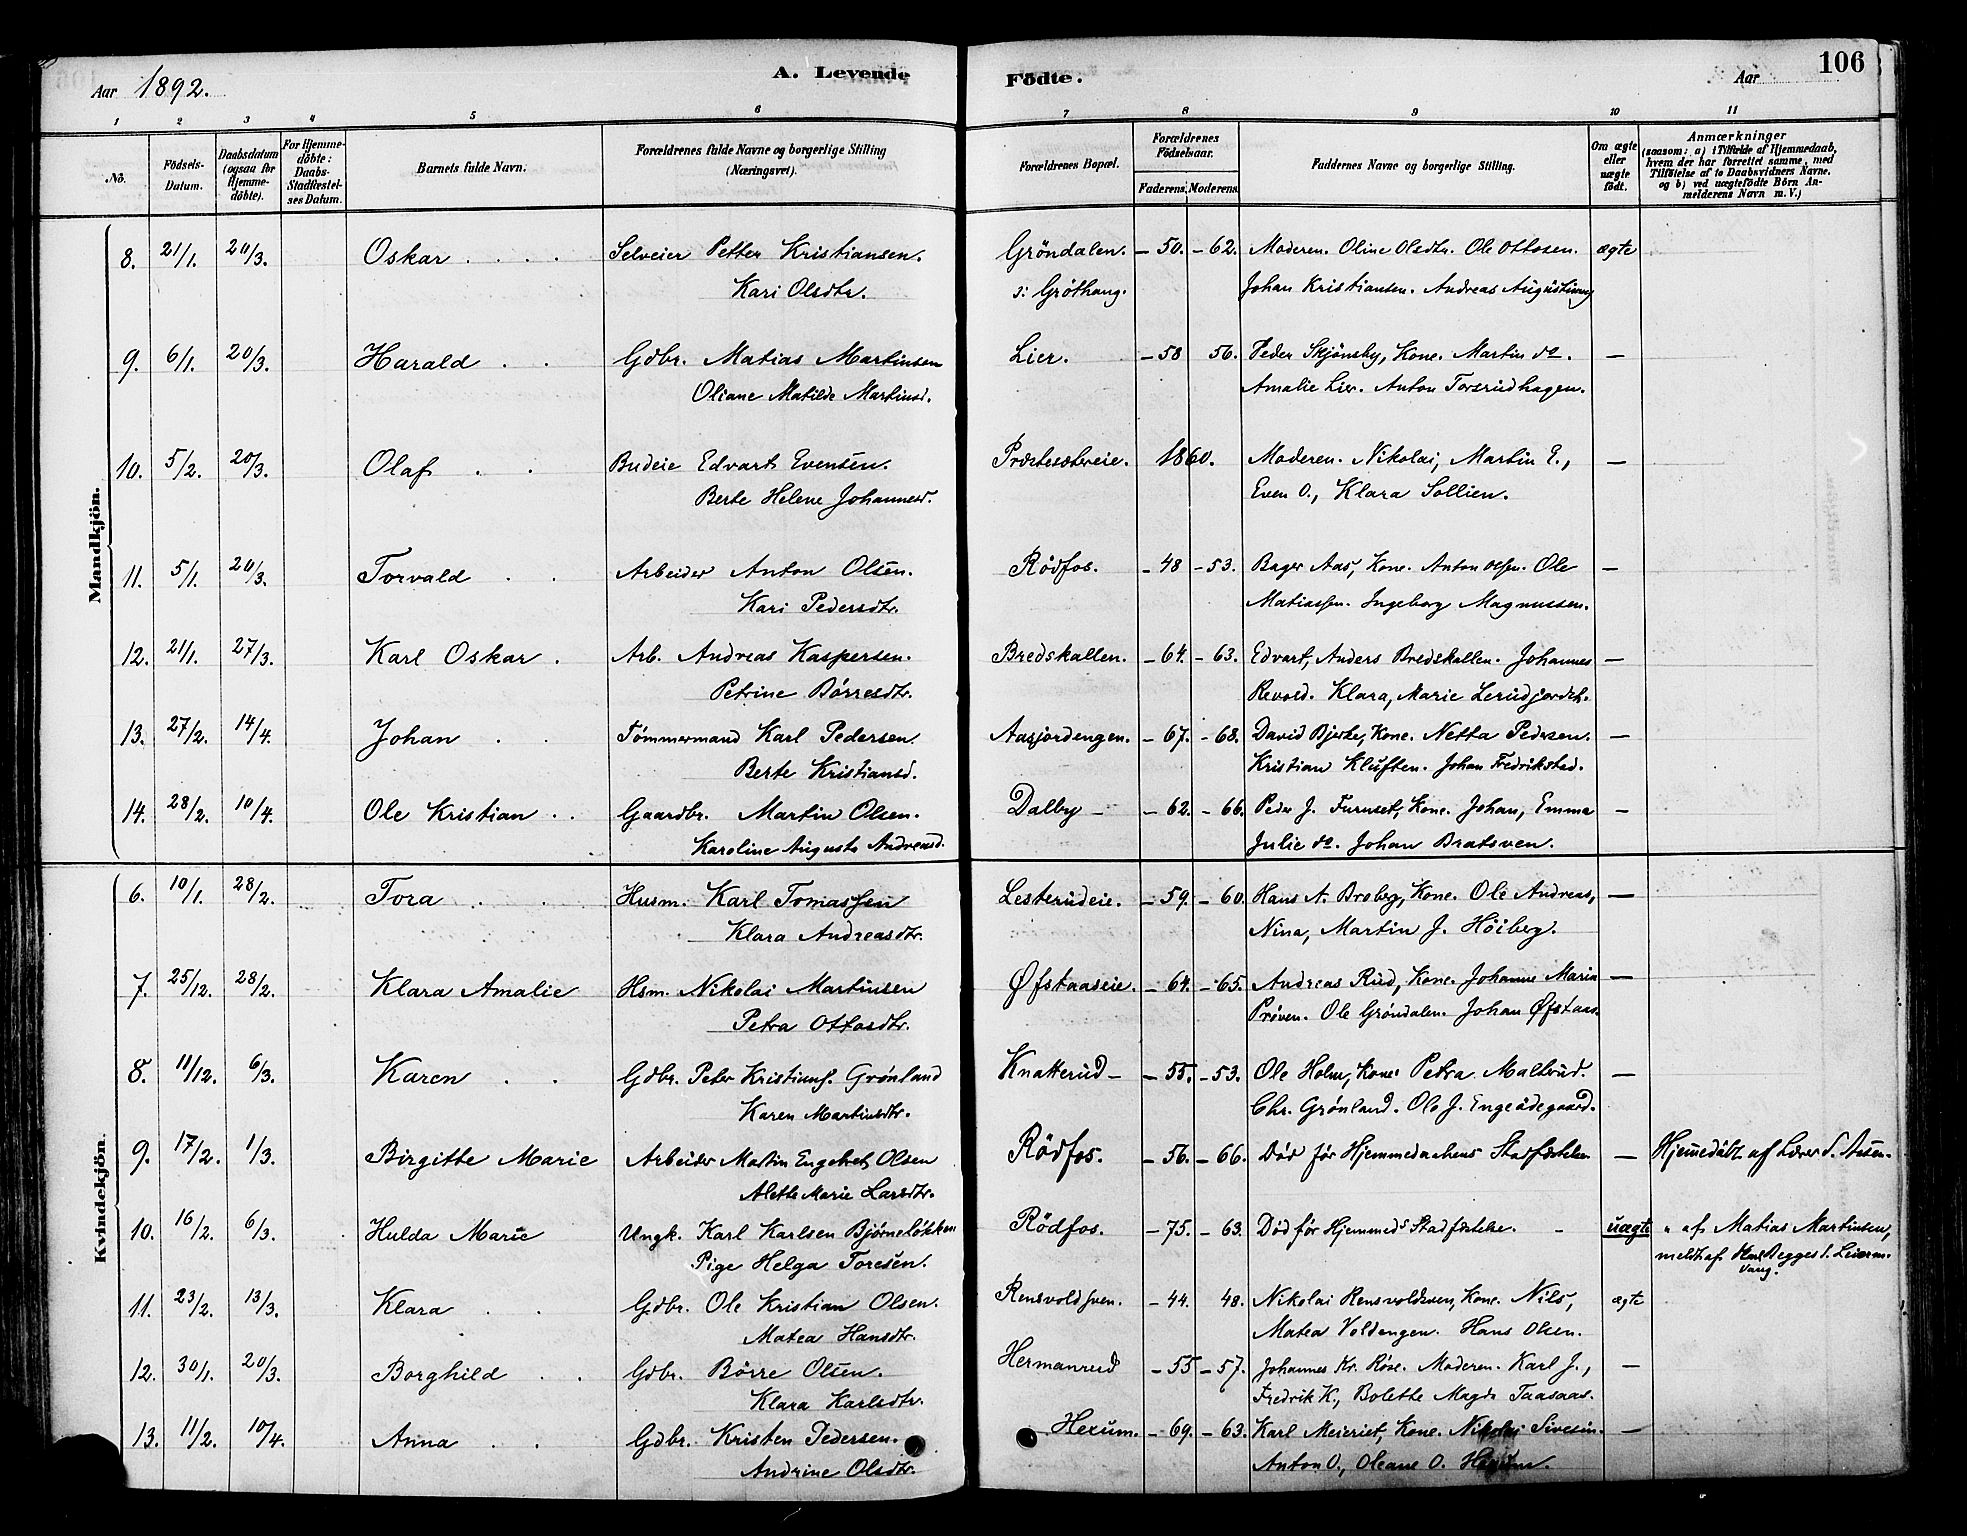 A. Levende Födte.
106
Aar 1892.
Aar
1 2 3 4 5 6 7 8 9 10 11
No.
Födsels-Datum.
Daabsdatum (ogsaa for Hjemme-döbte).
For Hjemme-döbte: Daabs-Stadfæstel-ses Datum.
Barnets fulde Navn.
Forældrenes fulde Navne og borgerlige Stilling (Næringsvei).
Forældrenes Bopæl.
Forældrenes Födselsaar.
Faderens. Moderens.
Faddernes Navne og borgerlige Stilling.
Om ægte eller uægte födt.
Anmærkninger
(saasom: a) i Tilfælde af Hjemmedaab, hvem der har forrettet samme, med Tilföielse af to Daabsvidners Navne. og b) ved uægtefödte Börn An-melderens Navn m. V.)
Mandkjön.
8. 21/1. 20/3. Oskar Selveier Petter Kristiansen. Gröndalen. - 50. - 62. Moderen. Oline Olsdtr. Ole Ottosen. ægte
Kari Olsdtr. ɔ: Gröthaug. Johan Kristiansen. Andreas Augustinus
9. 6/1. 20/3. Harald Gdbr. Matias Martinsen Lier. - 58 56. Peder Skjönsby, Kone. Martin do. —
Oliane Matilde Martinsd. Amalie Lier. Anton Torsrudhagen.
10. 5/2. 20/3. Olaf Budeie Edvart Evensen. Præstesætereie. 1860. Moderen. Nikolai, Martin E., —
Berte Helene Johannesd. Even O., Klara Sollien.
11. 5/1. 20/3. Torvald Arbeider Anton Olsen. Rödfos. - 48 - 53. Bager Aas, Kone. Anton Olsen. Ole —
Kari Pedersdtr. Matiassen. Ingeborg Magnussen.
12. 21/1. 27/3. Karl Oskar. Arb. Andreas Kaspersen. Bredskallen. - 64. - 63. Edvart, Anders Bredskallen. Johannes —
Petrine Børresdtr. Revold. Klara, Marie Lerudjordet.
13. 27/2. 14/4. Johan Tömmermand Karl Pedersen. Aasjordengen. - 67. - 68. David Bjerke, Kone. Netta Pedersen. —
Berte Kristiansd. Kristian Kluften. Johan Fredrikstad.
14. 28/2. 10/4. Ole Kristian Gaardbr. Martin Olsen. Dalby - 62. - 66. Peder J. Furuset, Kone. Johan, Emma —
Karoline Augusta Andreasd. Julie do. Johan Bratsven.
Kvindekjön.
6. 10/1. 28/2. Tora Husm. Karl Tomassen Lesterudeie. - 59. - 60. Hans A. Broberg, Kone. Ole Andreas, —
Klara Andreasdtr. Nina, Martin J. Höiberg.
7. 25/12. 28/2. Klara Amalie Hsm. Nikolai Martinsen Øfstaaseie. - 64. - 65. Andreas Rud, Kone. Johanne Maria —
Petra Ottosdtr. Prøven. Ole Gröndalen. Johan Øfstaas.
8. 11/12. 6/3. Karen Gdbr. Peter Kristians. Grönland Knatterud - 55. - 53. Ole Holm, Kone. Petra Malterud. —
Karen Martinsdtr. Chr. Grönland. Ole J. Engeödegaard.
9. 17/2. 1/3. Birgitte Marie Arbeider Martin Engebret Olsen Rödfos. - 56. - 66. Död før Hjemmedaabens Stadfæstelse — Hjemmedöbt af Lærer S. Aasen.
Alette Marie Larsdtr.
10. 16/2. 6/3. Hulda Marie Ungk. Karl Karlsen Bjørneløkken Rödfos. - 75. - 63. Död før Hjemmeds Stadfæstelse. uægte " af Matias Martinsen,
Pige Helga Toresen. meldt af Begges f. Leierm.
11. 23/2. 13/3. Klara Gdbr. Ole Kristian Olsen. Rensvoldsven. - 44. 48. Nikolai Rensvoldsven, Kone. Nils, ægte
Matea Hansdtr. Matea Voldengen. Hans Olsen.
12. 30/1. 20/3. Borghild Gdbr. Börre Olsen. Hermanrud - 55 - 57. Johannes Kr. Röse. Moderen. Karl J., —
Klara Karlsdtr. Fredrik K., Bolette Magda Taasaas.
13. 11/2. 10/4. Anna Gdbr. Kristen Pedersen. Hexum. - 69. - 63. Karl Meieriet, Kone. Nikolai Sivesin. —
Andrine Olsdtr. Anton O., Oleane O. Hexum.